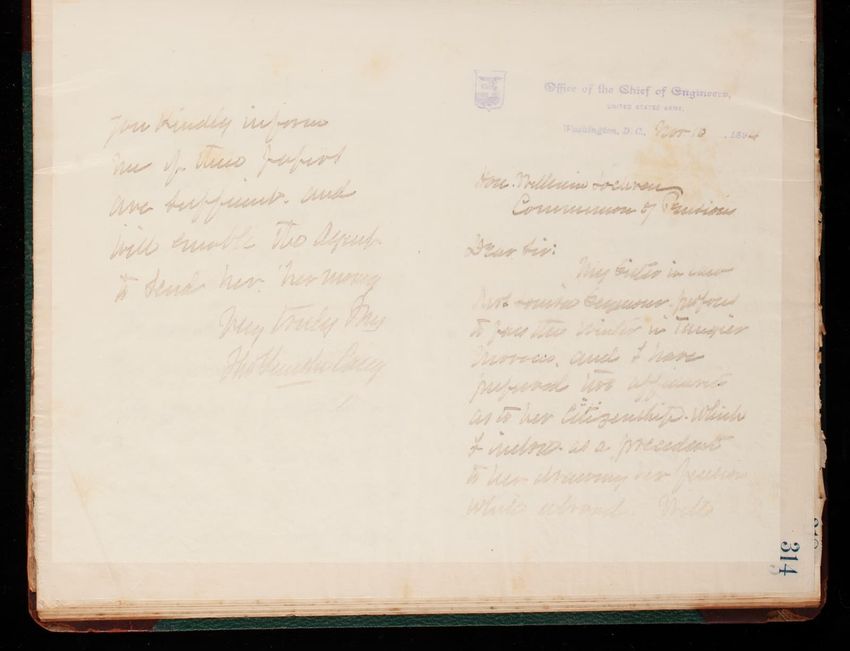 Office of the Chief of Engineers,
UNITED STATES ARMY,
Washington, D.C., Nov 10, 1894
Hon. William Lochren
Commissioner of Pensions
Dear Sir:
My Sister in law
Mrs. Louisa Seymour proposes
to pass the winter in Tangier
Morocco, and I have
prepared two affidavits
as to her Citizenship. Which
I inclose as a precedent
to her drawing her pension
while abroad. Will
you kindly inform
me if these papers
are sufficient. and
will enable the Agent
to send her. her money
Very truly Yrs
Thos Lincoln Casey
314